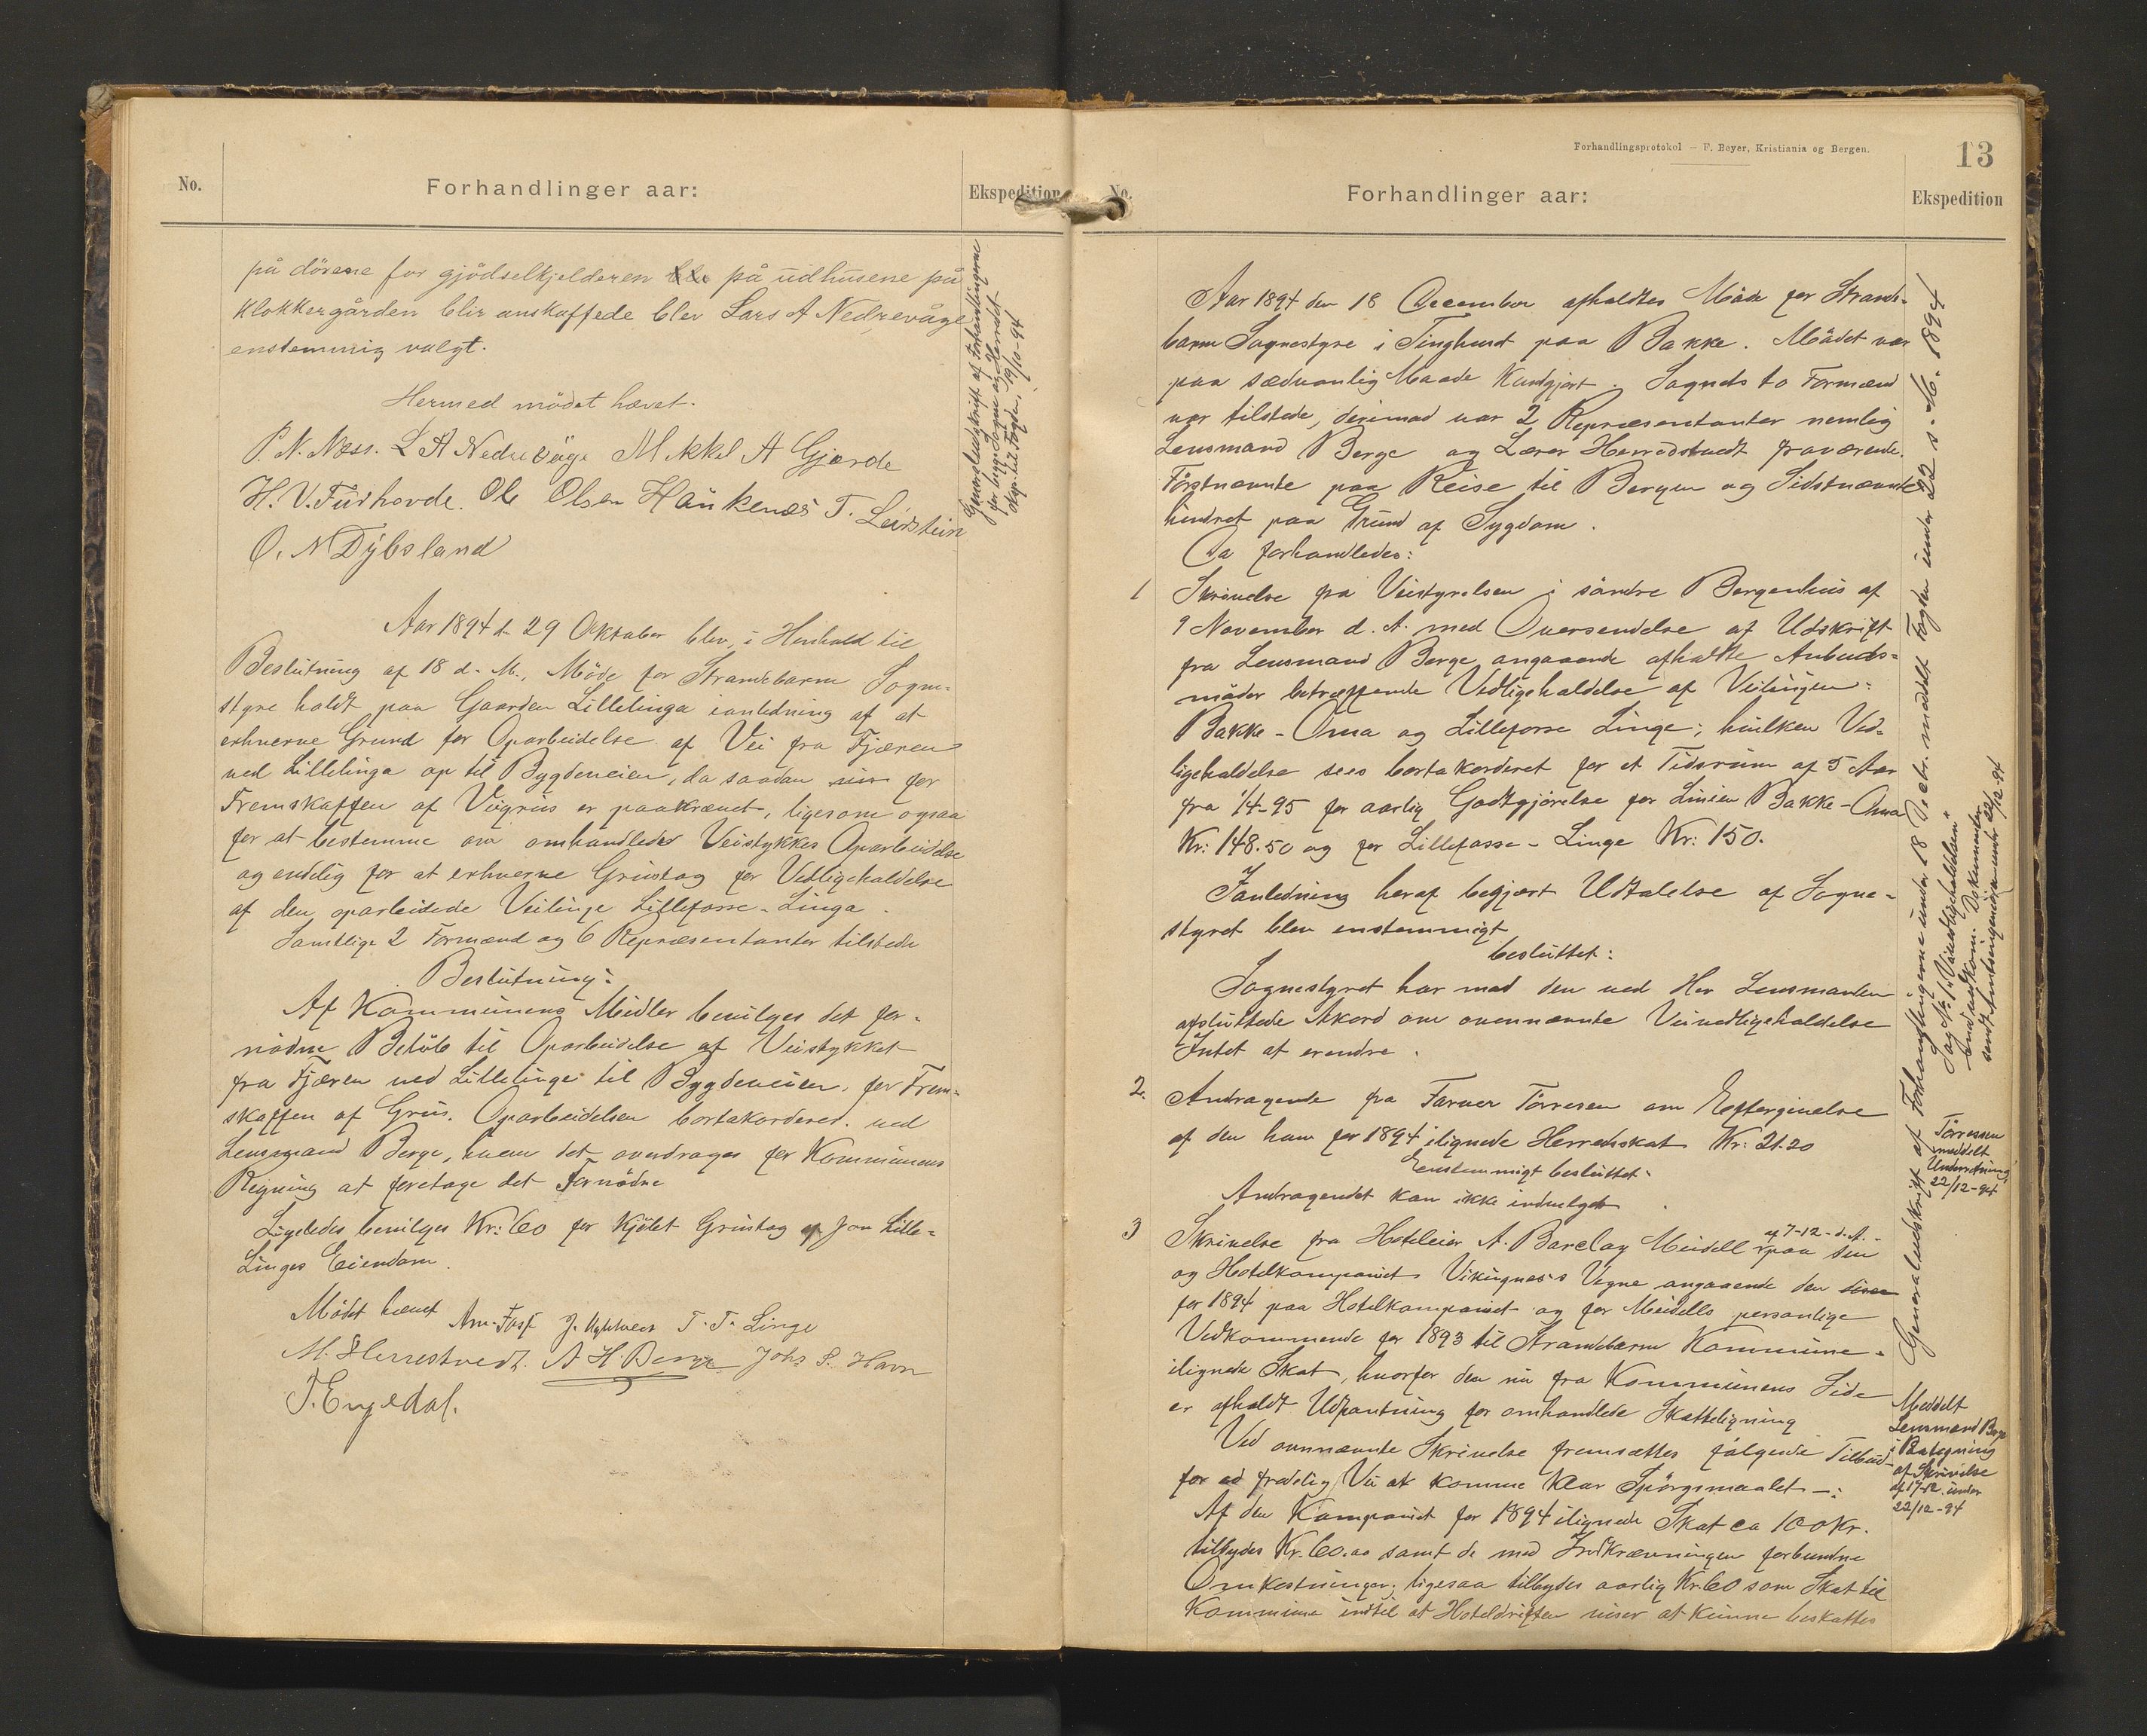 No.
Forhandlinger aar:
Ekspedition
på dörene for gjödselkjelderen på udhusene på
Klokkergården blir anskaffede blev Lars A Nedrevåge
enstemmig valgt.
Hermed mödet hævet.
P. N. Næss. L A Nedrevåge Mikkel A Gjerde
H. V. Furhovde. Ole Olsen Haukenæs T. Leirstein
O. N Dybsland
Generaludskrift af Forhandlingerne
for begge Sogne og Herredet
exp. til Fogden, 19/10-94
Aar 1894 d. 29 Oktober blev, i Henhold til
Beslutning af 18 d. M., Möde for Strandebarm Sogne-
styre holdt paa Gaarden Lillelinga ianledning af at
erhverve Grund for Oparbeidelse af Vei fra Fjæren
ved Lillelinga op til Bygdeveien, da saadan for
Fremskaffen af Veigrus er paakrævet, ligesom ogsaa
for at bestemme om omhandlede Veistykkes Oparbeidelse
og endelig for at erhverve Grustag for Vedligeholdelse
af den oparbeidede Veilinje Lillefosse - Linga.
Samtlige 2 Formænd og 6 Repræsentanter tilstede
Beslutning:
Af Kommunens Midler bevilges det for-
nödne Belöb til Oparbeidelse af Veistykket
fra Fjæren ved Lillelinge til Bygdeveien, for Frem-
skaffen af Grus. Oparbeidelsen bortakorderes ved
Lensmand Berge, hvem det overdrages for Kommunens
Regning at foretage det Fornödne
Ligeledes bevilges Kr: 60 for kjöbt Grustag af Jon Lille-
Linges Eiendom.
Mödet hævet
T. T. Linge
M. Herrestvedt. A H. Berge Johs S. Havn
T. Engedal.
Forhandlingsprotokol — F. Beyer, Kristiania og Bergen.
13
No.
Forhandlinger aar:
Ekspedition
Aar 1894 den 18 December afholdtes Möde for Strande-
barm Sognestyre i Tinghuset paa Bakke. Mödet var
paa sædvanlig Maade Kundgjort. Sognets to Formænd
var tilstede, derimod var 2 Repræsentanter nemlig
Lensmand Berge og Lærer Herredstvedt fraværende.
Förstnævnte paa Reise til Bergen og Sidstnævnte
hindret paa Grund af Sygdom.
Da forhandledes:
1 Skrivelse fra Veistyrelsen i söndre Bergenhus af
9 November d. A. med Oversendelse af Udskrift
fra Lensmand Berge angaaende afholdte Anbuds-
möder betræffende Vedligeholdelse af Veilinjen:
Bakke - Oma og Lillefosse Linge; hvilken Ved-
ligeholdelse sees bortakorderet for et Tidsrum af 5 Aar
fra 1/4-95 for aarlig Godtgjörelse for Linien Bakke - Oma
Kr: 148.50 og for Lillefosse - Linge Kr: 150.
I Anledning heraf begjært Udtalelse af Sogne-
styret blev enstemmigt
besluttet:
Sognestyret har mod den ved Hr Lensmanden
afsluttede Akord om ovennævnte Veivedligeholdelse
Intet at erindre.
2. Andragende fra Farver Törresen om Eftergivelse
af den ham for 1894 ilignede Herredsskat Kr: 21.20
Enstemmigt besluttet:
Andragendet kan ikke indvilges
3 Skrivelse fra Hoteleier A. Barclay Meidell af 7-12-d.A. paa sin
og Hotelkompaniet Vikingnæs's Vegne angaaende den
for 1894 paa Hotelkompaniet og for Meidells personlige
Vedkommende for 1893 til Strandebarm Kommune
ilignede Skat, hvorfor der nu fra Kommunens Side
er afholdt Udpantning for omhandlede Skatteligning
Ved ovennævnte Skrivelse fremsættes fölgende Tilbud
for ad fredelig Vei at komme klar Spörgsmaalet -:
Af den Kompaniet for 1894 ilignede Skat ca 100 Kr.
tilbydes Kr. 60.00 samt de med Indkrævningen forbundne
Omkostninger; ligesaa tilbydes aarlig Kr. 60 som Skat til
Kommune indtil at Hoteldriften viser at kunne beskattes
Generaludskrift af Forhandlingerne under 18 Decbr. meddelt Fogden under 22 s. M. 1894
Sag No 1 "Veivedligeholdelsen"
Törressen
meddelt
Underretning
22/12-94
Meddelt
Lensmand Berge
i Paategning
af Skrivelse
af 17-12 under
22/12-94